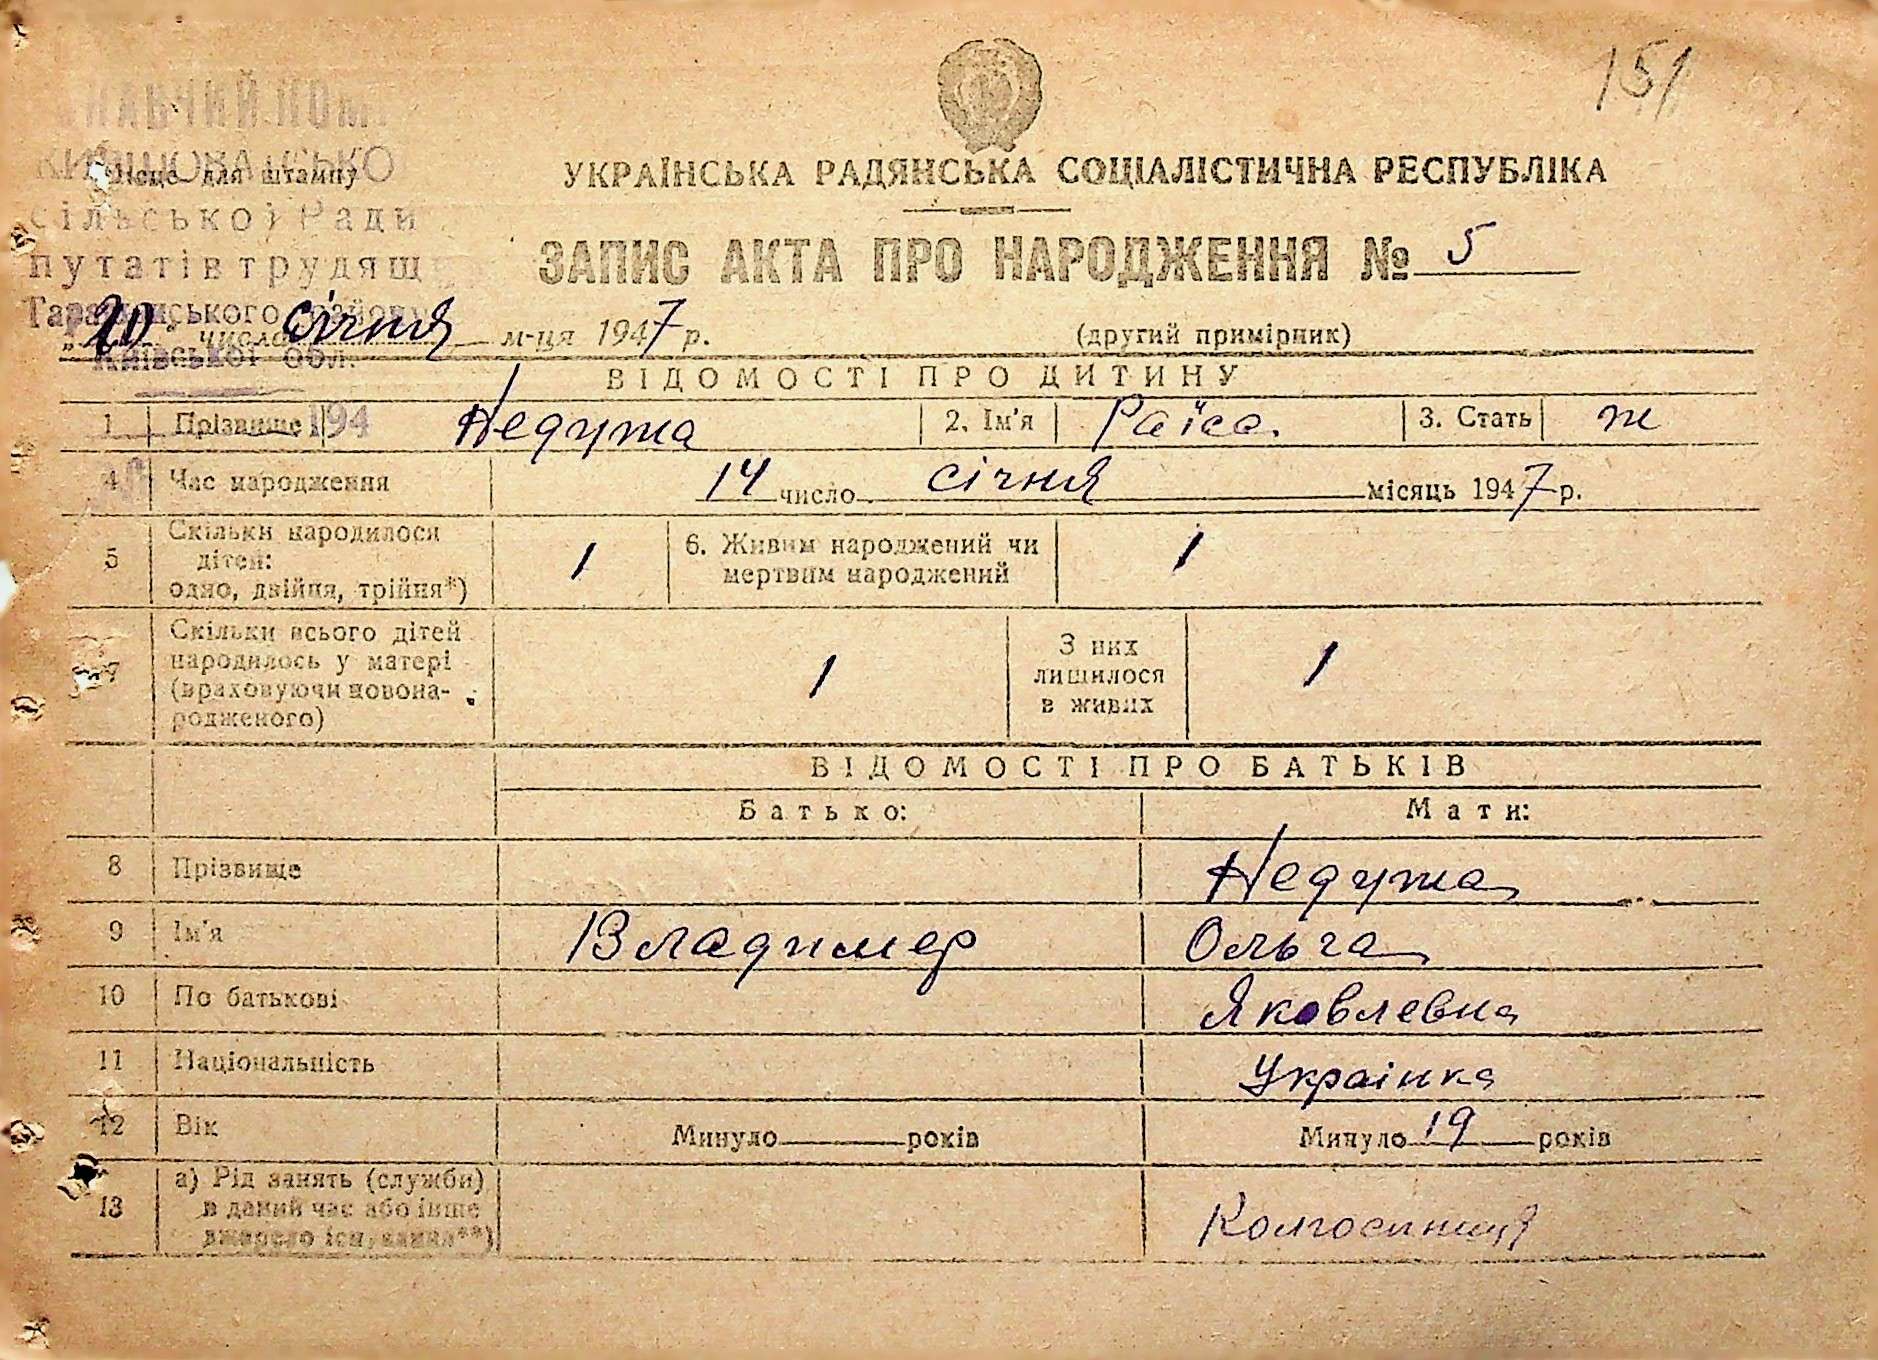 151
Місце для штампу
сільської Ради
путатів трудящ
Таращанського району
Київської обл.
194
УКРАЇНСЬКА РАДЯНСЬКА СОЦІАЛІСТИЧНА РЕСПУБЛІКА
ЗАПИС АКТА ПРО НАРОДЖЕННЯ № 5
„20" числа січня м-ця 1947 р. (другий примірник)
ВІДОМОСТІ ПРО ДИТИНУ
1 Прізвище Недужа 2. Ім'я Раїса. 3. Стать ж
4 Час народження 14 число січня місяць 1947 р.
5 Скільки народилося дітей: одно, двійня, трійня*) 1 6. Живим народжений чи мертвим народжений 1
7 Скільки всього дітей народилось у матері (враховуючи новонародженого) 1 З них лишилося в живих 1
ВІДОМОСТІ ПРО БАТЬКІВ
Батько: Мати:
8 Прізвище Недужа
9 Ім'я Владимер Ольга
10 По батькові Яковлевна
11 Національність Украінка
12 Вік Минуло років Минуло 19 років
13 а) Рід занять (служби) в даний час або інше джерело існування**) Колгоспниця